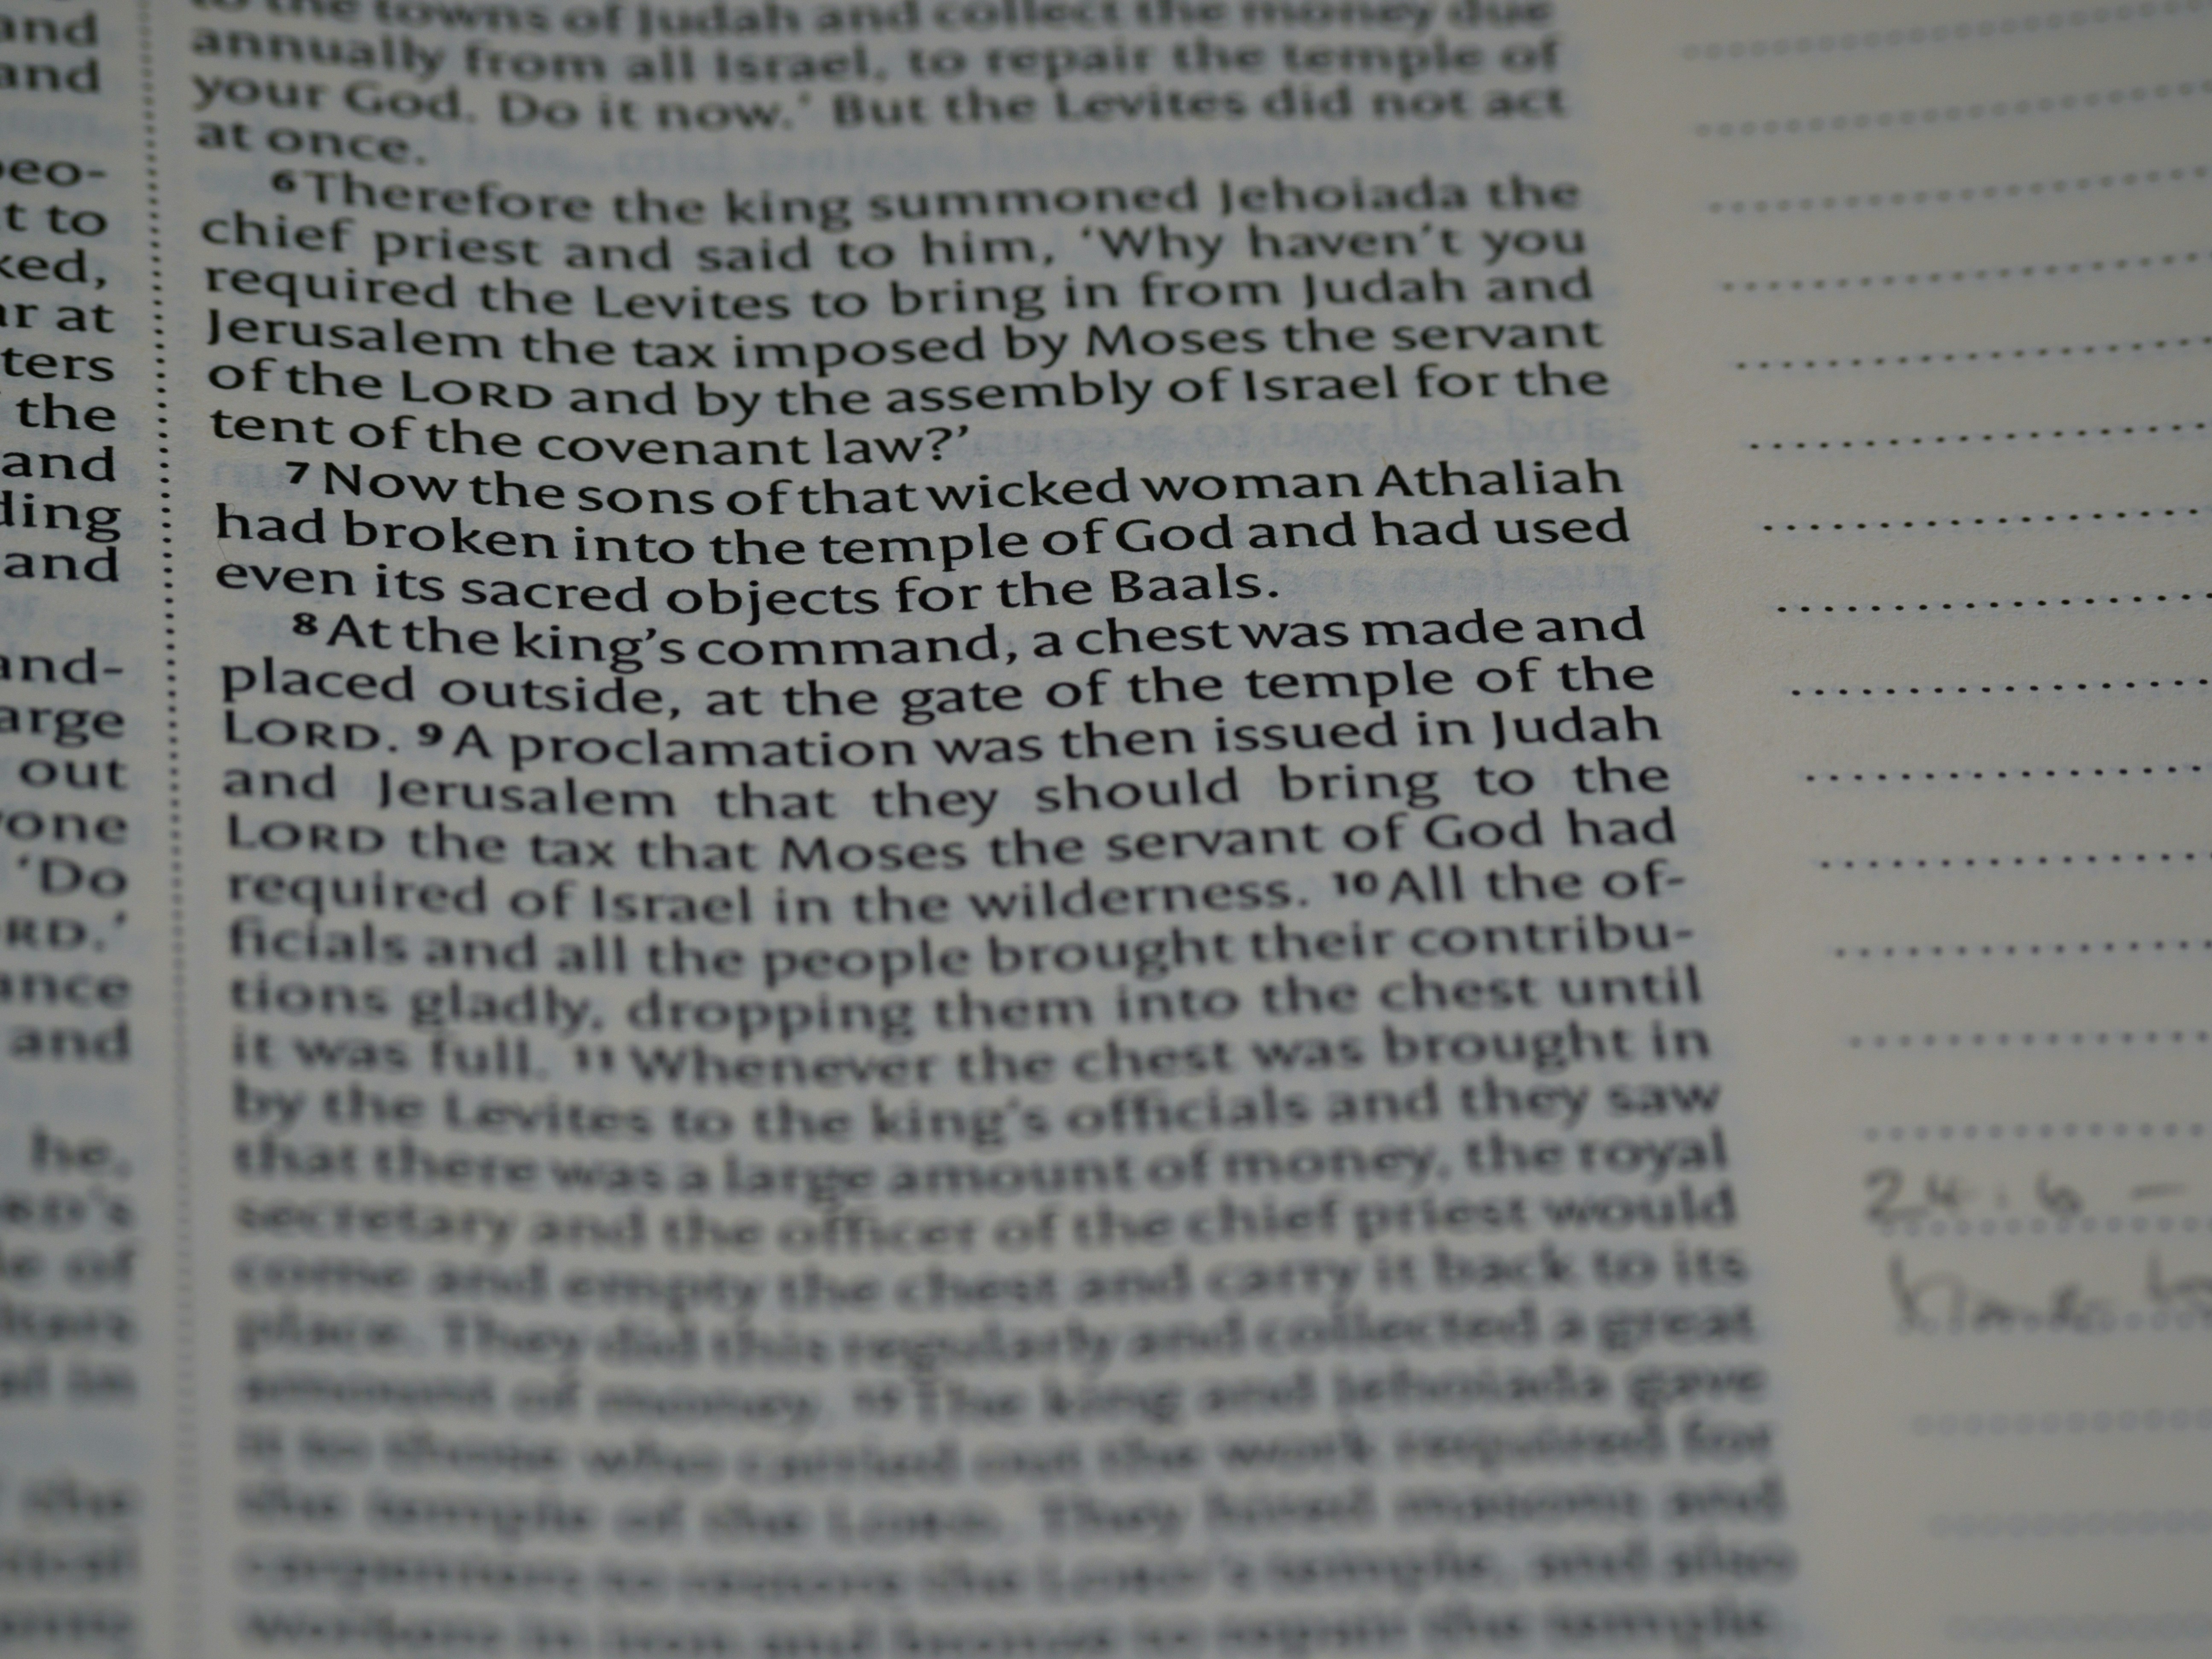 and
and
peo-
t to
ked,
ar at
ters
the
and
ding
and
and-
arge
out
one
‘Do
RD.’
ance
and
he,
RD’s
le of
to the towns of Judah and collect the money due
annually from all Israel, to repair the temple of
your God. Do it now.’ But the Levites did not act
at once.
6 Therefore the king summoned Jehoiada the
chief priest and said to him, ‘Why haven’t you
required the Levites to bring in from Judah and
Jerusalem the tax imposed by Moses the servant
of the LORD and by the assembly of Israel for the
tent of the covenant law?’
7 Now the sons of that wicked woman Athaliah
had broken into the temple of God and had used
even its sacred objects for the Baals.
8 At the king’s command, a chest was made and
placed outside, at the gate of the temple of the
LORD. 9 A proclamation was then issued in Judah
and Jerusalem that they should bring to the
LORD the tax that Moses the servant of God had
required of Israel in the wilderness. 10 All the of-
ficials and all the people brought their contribu-
tions gladly, dropping them into the chest until
it was full. 11 Whenever the chest was brought in
by the Levites to the king’s officials and they saw
that there was a large amount of money, the royal
secretary and the officer of the chief priest would
come and empty the chest and carry it back to its
place. They did this regularly and collected a great
amount of money. 12 The king and Jehoiada gave
it to those who carried out the work required for
the temple of the LORD. They hired masons and
carpenters to restore the LORD’s temple, and also
workers in iron and bronze to repair the temple.
24:6 –